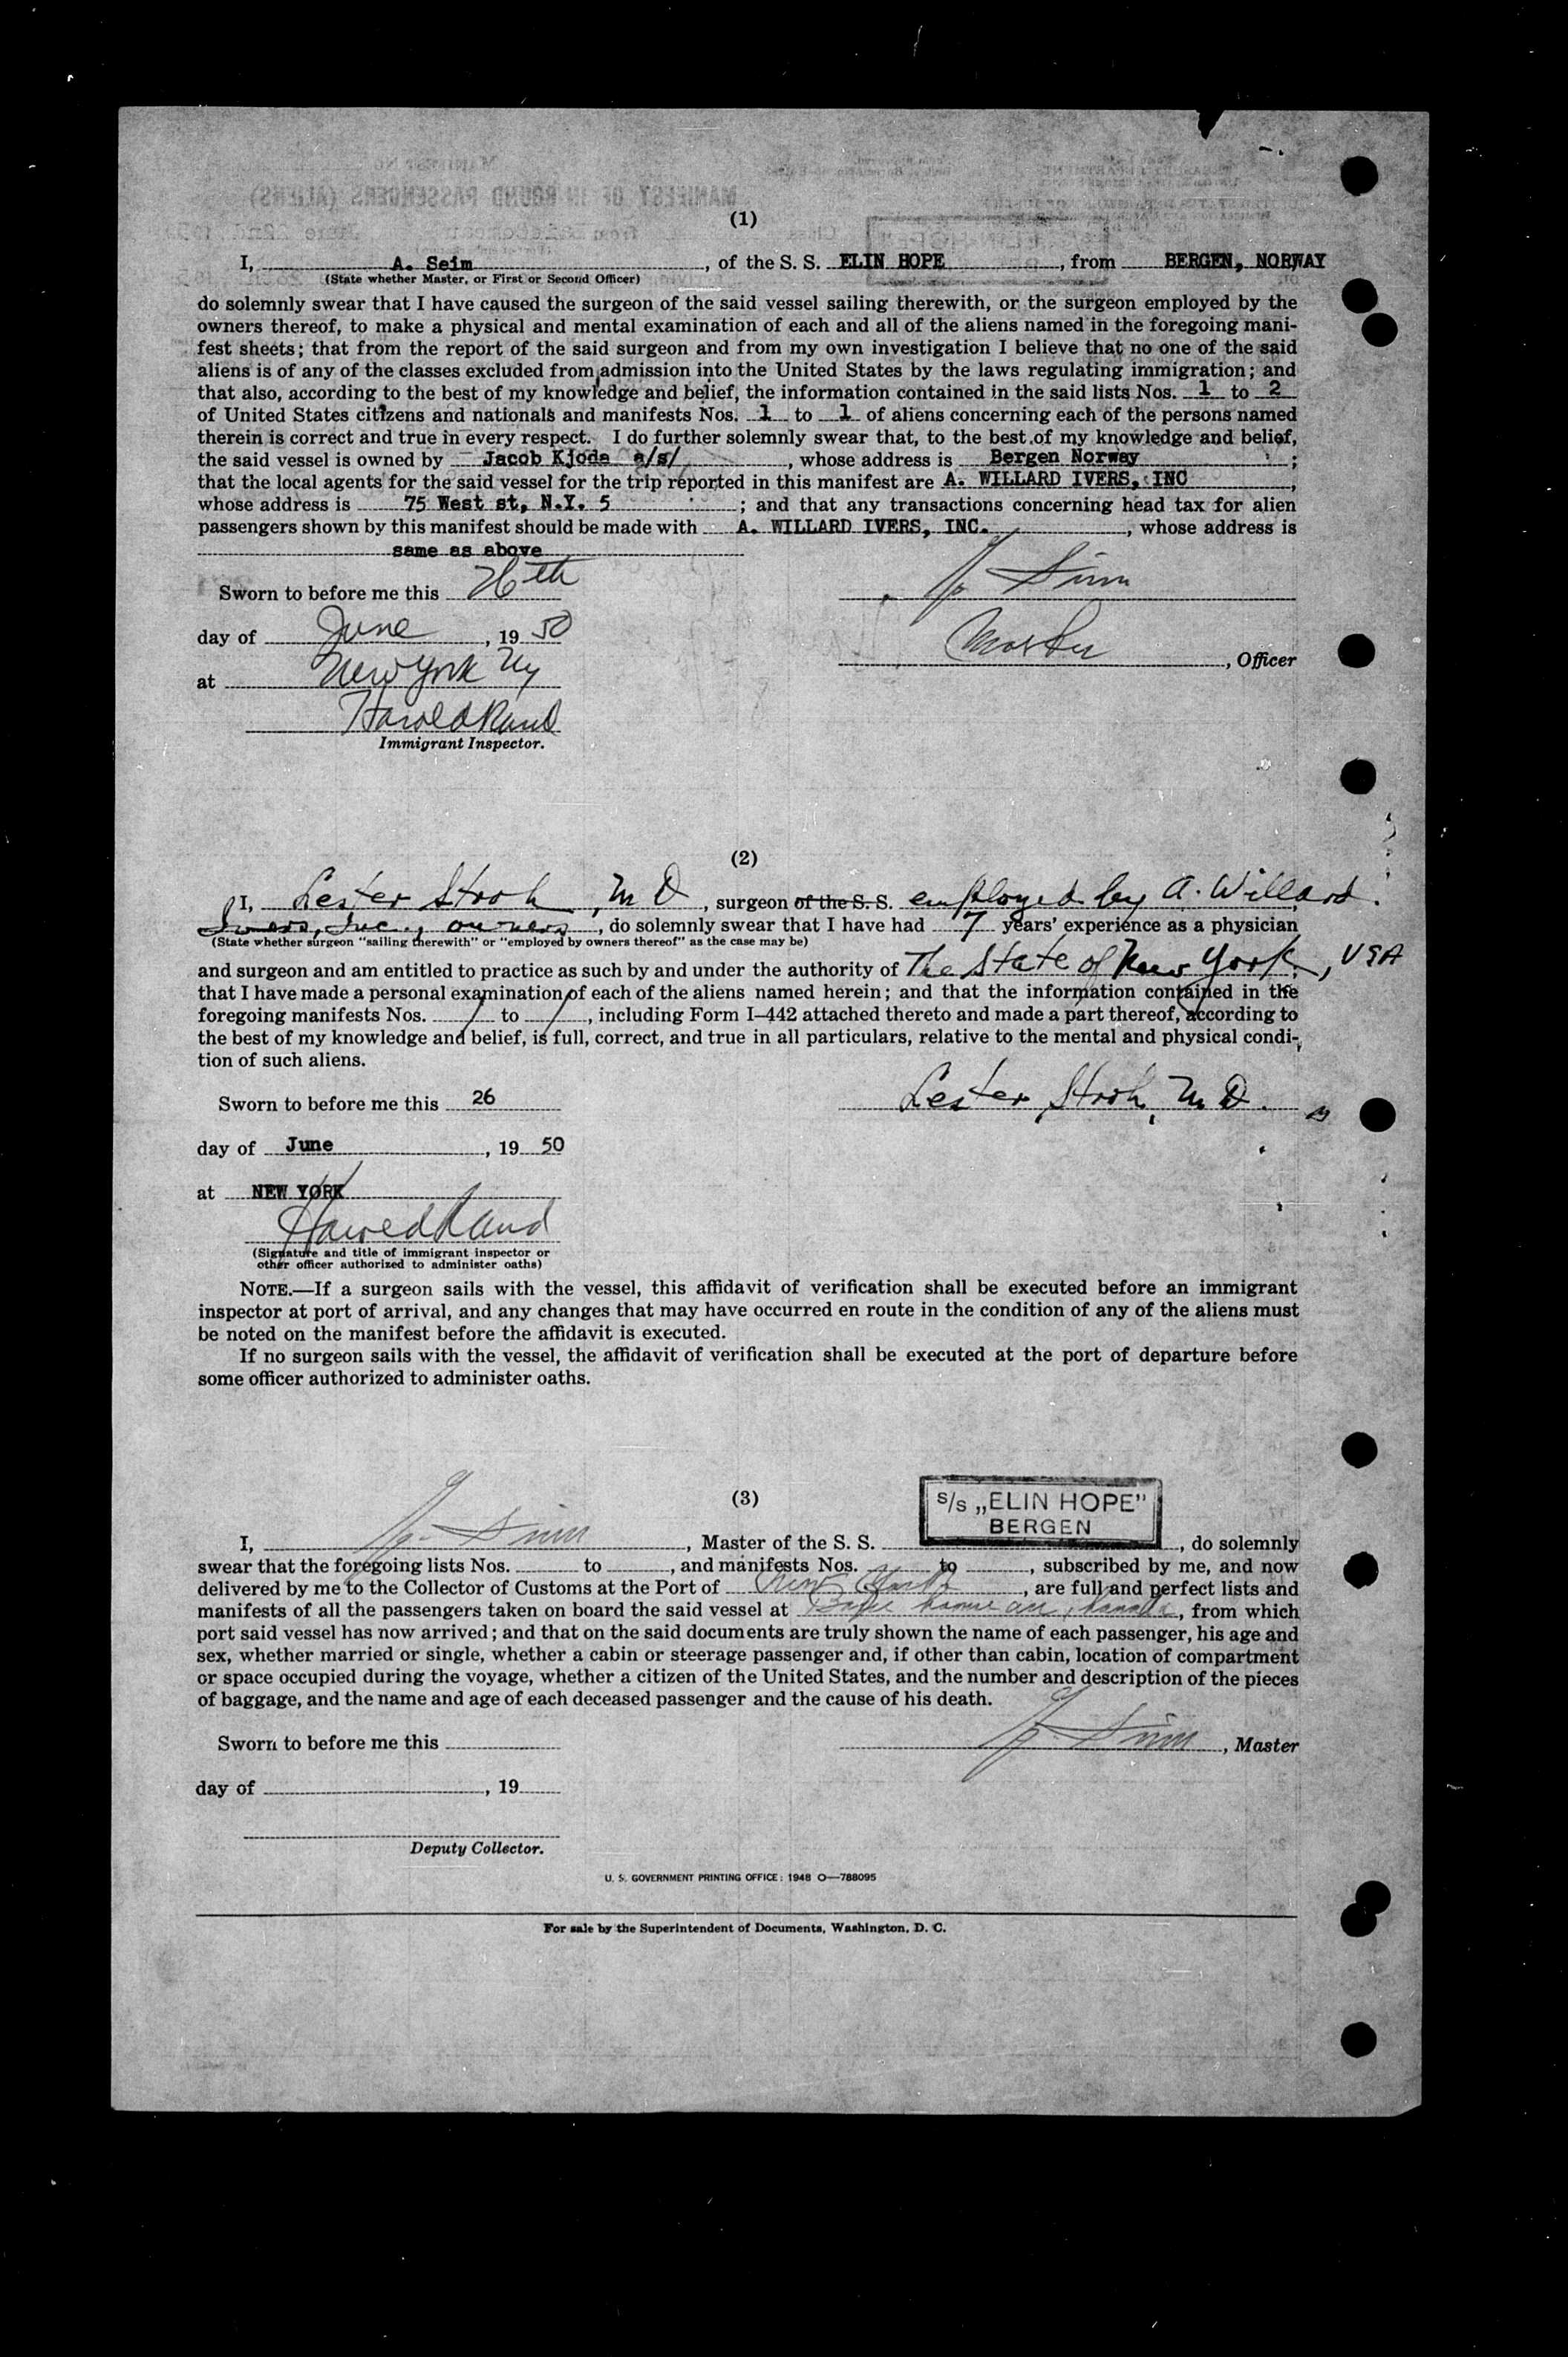 (1)
I, A. Seim, of the S. S. ELIN HOPE, from BERGEN, NORWAY
(State whether Master, or First or Second Officer)
do solemnly swear that I have caused the surgeon of the said vessel sailing therewith, or the surgeon employed by the
owners thereof, to make a physical and mental examination of each and all of the aliens named in the foregoing mani-
fest sheets; that from the report of the said surgeon and from my own investigation I believe that no one of the said
aliens is of any of the classes excluded from admission into the United States by the laws regulating immigration; and
that also, according to the best of my knowledge and belief, the information contained in the said lists Nos. 1 to 2
of United States citizens and nationals and manifests Nos. 1 to 1 of aliens concerning each of the persons named
therein is correct and true in every respect. I do further solemnly swear that, to the best of my knowledge and belief,
the said vessel is owned by Jacob Kjode a/s/, whose address is Bergen Norway;
that the local agents for the said vessel for the trip reported in this manifest are A. WILLARD IVERS, INC,
whose address is 75 West st, N.Y. 5; and that any transactions concerning head tax for alien
passengers shown by this manifest should be made with A. WILLARD IVERS, INC., whose address is
same as above
Sworn to before me this 26th
day of June, 1950
Master, Officer
at New York Ny
Harold Rand
Immigrant Inspector.
(2)
I, Lester Stroh, M D, surgeon of the S. S. employed by A. Willard
Ivers, Inc., owners, do solemnly swear that I have had 7 years' experience as a physician
(State whether surgeon "sailing therewith" or "employed by owners thereof" as the case may be)
and surgeon and am entitled to practice as such by and under the authority of The State of New York, USA
that I have made a personal examination of each of the aliens named herein; and that the information contained in the
foregoing manifests Nos. 1 to 1, including Form I–442 attached thereto and made a part thereof, according to
the best of my knowledge and belief, is full, correct, and true in all particulars, relative to the mental and physical condi-
tion of such aliens.
Sworn to before me this 26
Lester Stroh, M D.
day of June, 1950
at NEW YORK
Harold Rand
(Signature and title of immigrant inspector or
other officer authorized to administer oaths)
NOTE.—If a surgeon sails with the vessel, this affidavit of verification shall be executed before an immigrant
inspector at port of arrival, and any changes that may have occurred en route in the condition of any of the aliens must
be noted on the manifest before the affidavit is executed.
If no surgeon sails with the vessel, the affidavit of verification shall be executed at the port of departure before
some officer authorized to administer oaths.
(3)
s/s „ELIN HOPE"
BERGEN
I, , Master of the S. S. , do solemnly
swear that the foregoing lists Nos. to , and manifests Nos. to , subscribed by me, and now
delivered by me to the Collector of Customs at the Port of New York, are full and perfect lists and
manifests of all the passengers taken on board the said vessel at Baie Comeau, Canada, from which
port said vessel has now arrived; and that on the said documents are truly shown the name of each passenger, his age and
sex, whether married or single, whether a cabin or steerage passenger and, if other than cabin, location of compartment
or space occupied during the voyage, whether a citizen of the United States, and the number and description of the pieces
of baggage, and the name and age of each deceased passenger and the cause of his death.
Sworn to before me this
, Master
day of , 19
Deputy Collector.
U. S. GOVERNMENT PRINTING OFFICE: 1948 O—788095
For sale by the Superintendent of Documents, Washington, D. C.